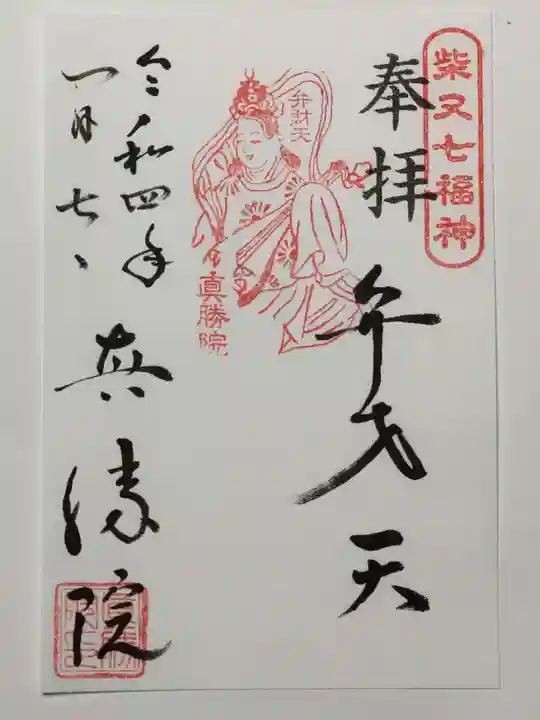 柴又七福神
奉拝
弁才天
弁財天
真勝院
令和四年
一月七日
真勝院